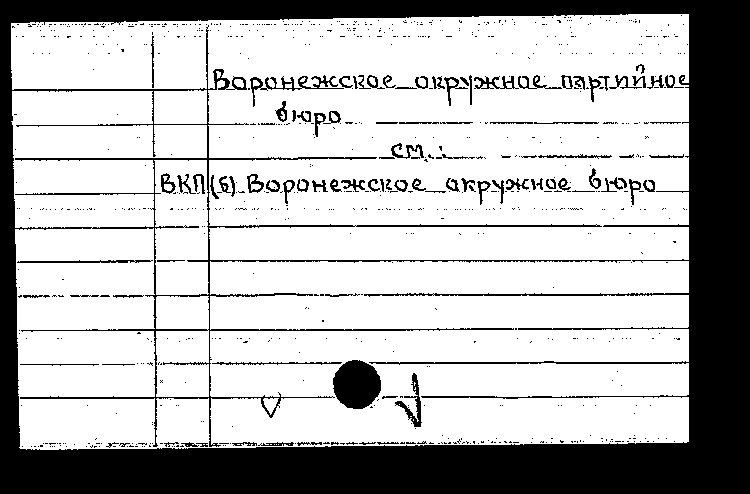 Воронежское окружное партийное
бюро
см.:
ВКП(б) Воронежское окружное бюро